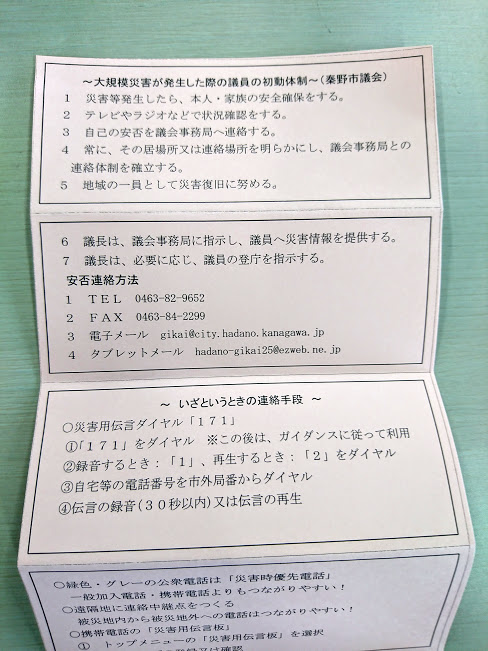 ～大規模災害が発生した際の議員の初動体制～(秦野市議会)
1 災害等発生したら、本人・家族の安全確保をする。
2 テレビやラジオなどで状況確認をする。
3 自己の安否を議会事務局へ連絡する。
4 常に、その居場所又は連絡場所を明らかにし、議会事務局との
連絡体制を確立する。
5 地域の一員として災害復旧に努める。
6 議長は、議会事務局に指示し、議員へ災害情報を提供する。
7 議長は、必要に応じ、議員の登庁を指示する。
安否連絡方法
1 ＴＥＬ 0463-82-9652
2 ＦＡＸ 0463-84-2299
3 電子メール gikai@city.hadano.kanagawa.jp
4 タブレットメール hadano-gikai25@ezweb.ne.jp
～ いざというときの連絡手段 ～
○災害用伝言ダイヤル「１７１」
①「１７１」をダイヤル ※この後は、ガイダンスに従って利用
②録音するとき：「1」、再生するとき：「2」をダイヤル
③自宅等の電話番号を市外局番からダイヤル
④伝言の録音(３０秒以内)又は伝言の再生
○緑色・グレーの公衆電話は「災害時優先電話」
一般加入電話・携帯電話よりもつながりやすい！
○遠隔地に連絡中継点をつくる
被災地内から被災地外への電話はつながりやすい！
○携帯電話の「災害用伝言板」
① トップメニューの「災害用伝言板」を選択